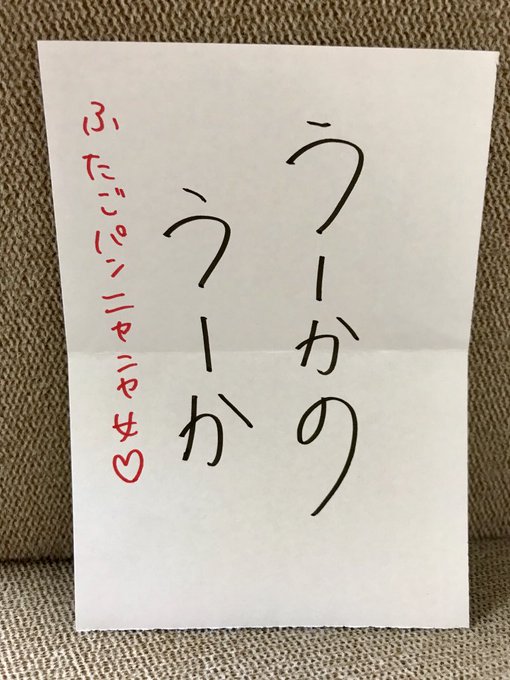 うーかの
うーか
ふたごパンニャニャ女♡